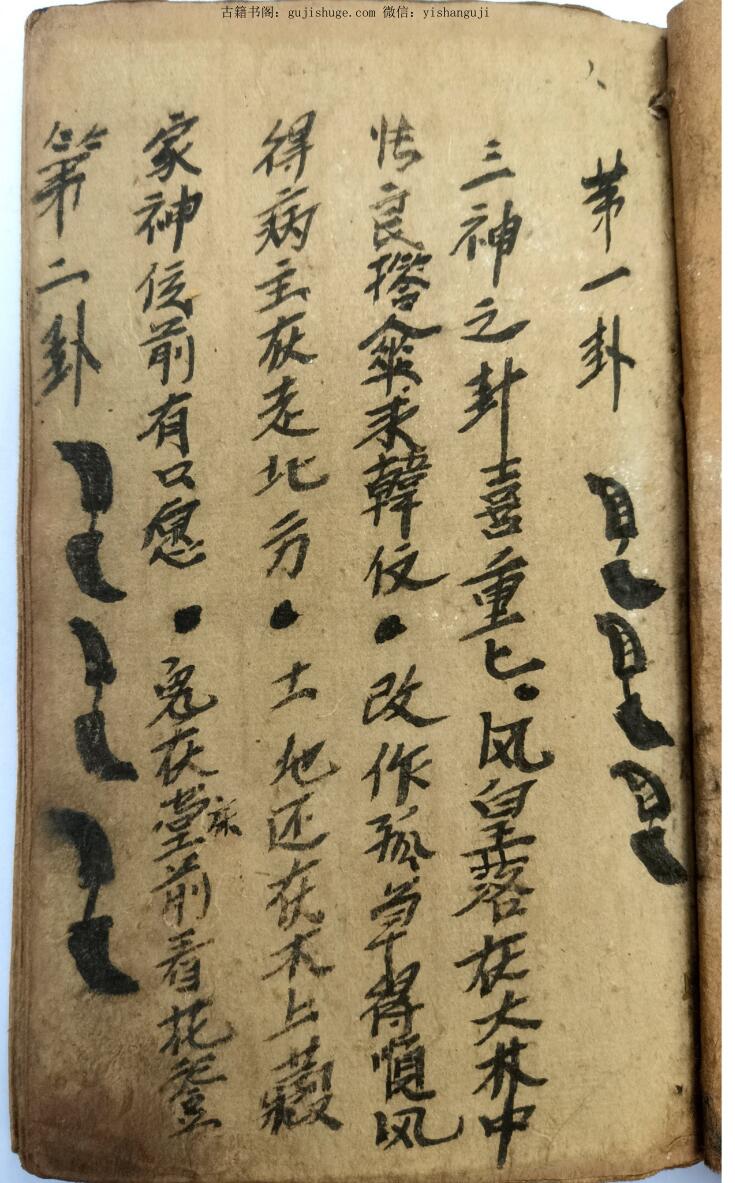 古籍书阁：gujishuge.com 微信：yishanguji
第一卦
三神之卦喜重匕·风皇落在大林中
良搭伞求韓仅·改作孤单得順风
得病主在走北方·土地还在木上藏
家神位前有口愿·鬼在堂前看花登
第二卦